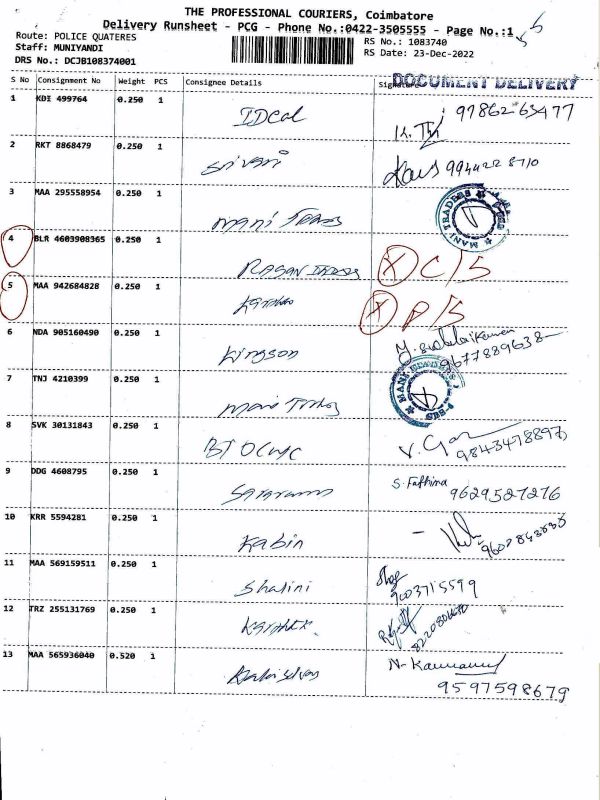 THE PROFESSIONAL COURIERS, Coimbatore
Delivery Runsheet - PCG - Phone No.:0422-3505555 - Page No.:1
Route: POLICE QUATERES
RS No.: 1083740
Staff: MUNIYANDI
RS Date: 23-Dec-2022
DRS No.: DCJB108374001
S No Consignment No Weight PCS Consignee Details Signature
DOCUMENT DELIVERY
1 KDI 499764 0.250 1 IDeal 97862 63477
2 RKT 8868479 0.250 1 Srivani 994422 8710
3 MAA 295558954 0.250 1 Mani MANI TRADERS
4 BLR 4603908365 0.250 1 X C/S
5 MAA 942684828 0.250 1 X P/S
6 NDA 905160490 0.250 1 Kingson 9677889638
7 TNJ 4210399 0.250 1 Mani
8 SVK 30131843 0.250 1 9843478897
9 DDG 4608795 0.250 1 S. Fathima 9629527276
10 KRR 5594281 0.250 1 Kabin
11 MAA 569159511 0.250 1 Shalini 9003715599
12 TRZ 255131769 0.250 1
13 MAA 565936040 0.520 1 9597598679